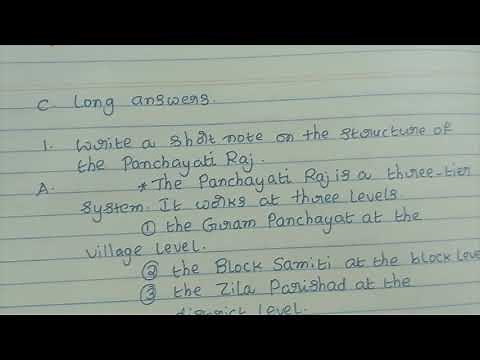 C. Long answers.
1. Write a short note on the structure of
the Panchayati Raj.
A. * The Panchayati Raj is a three-tier
system. It works at three levels.
① the Gram Panchayat at the
village level.
② the Block Samiti at the block level
③ the Zila Parishad at the
district level.